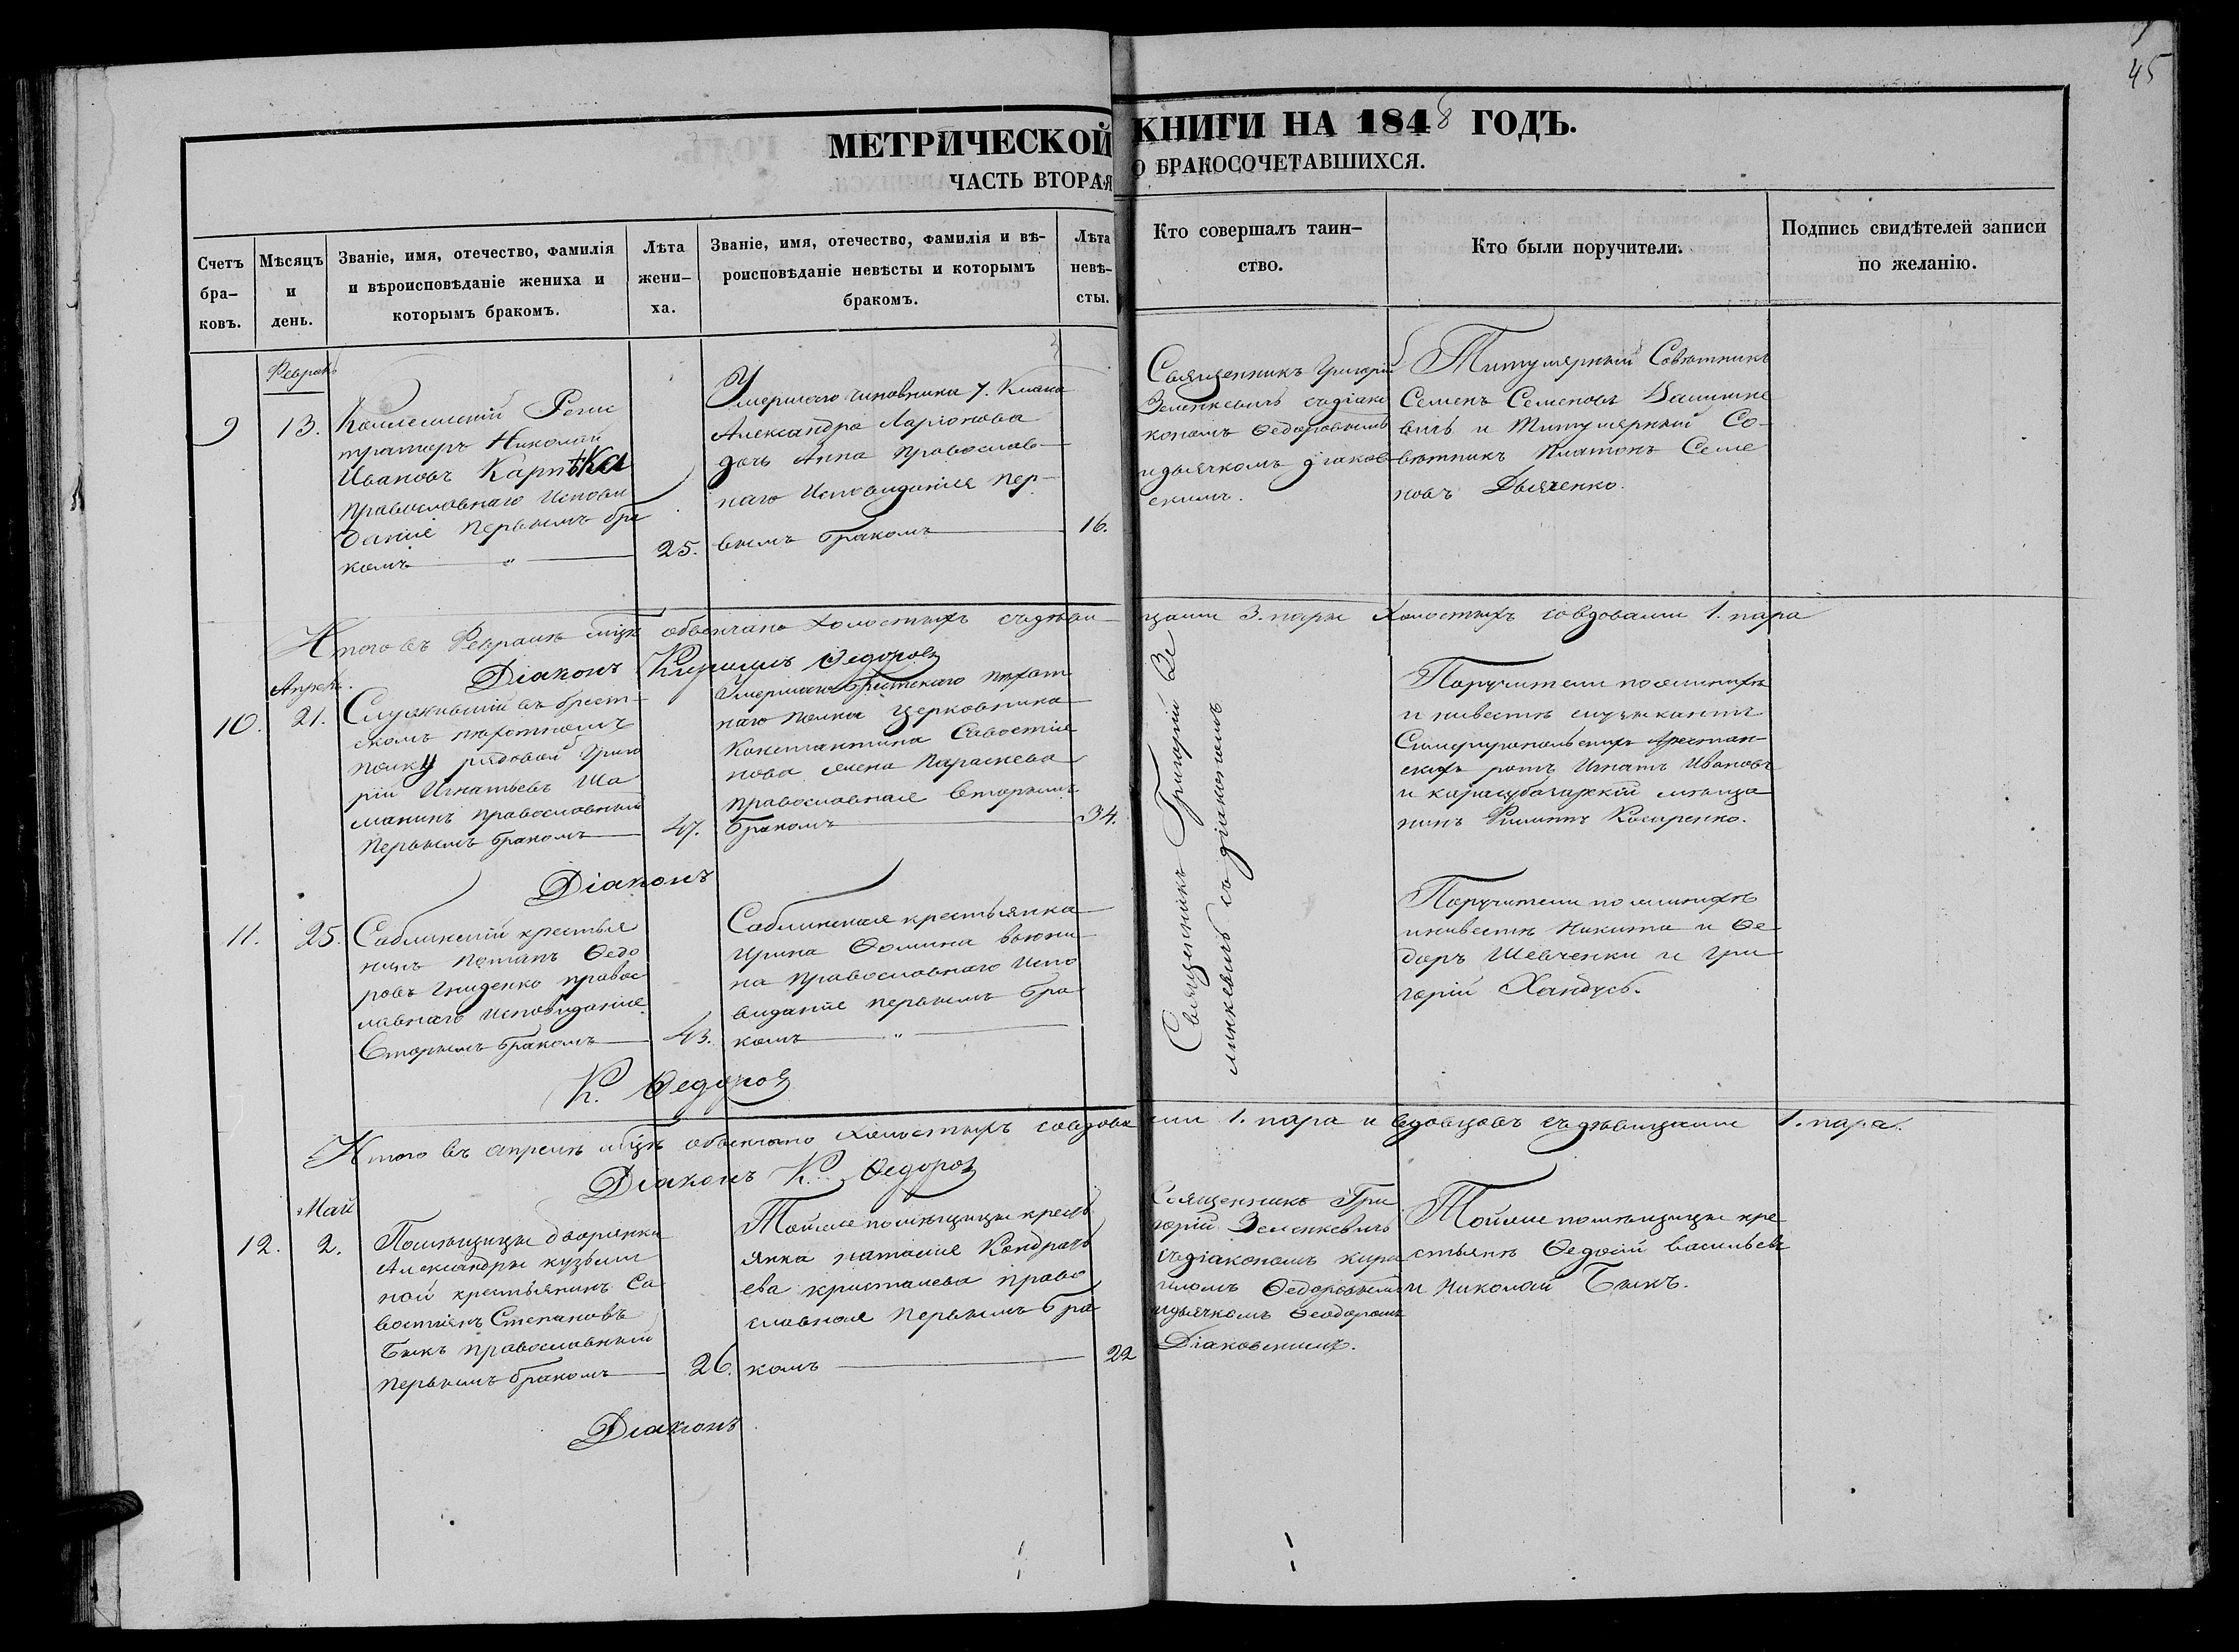 45
МЕТРИЧЕСКОЙ КНИГИ НА 1848 ГОДЪ.
ЧАСТЬ ВТОРАЯ О БРАКОСОЧЕТАВШИХСЯ.
Счетъ
бра-
ковъ.
Мѣсяцъ
и
день.
Званіе, имя, отечество, фамилія
и вѣроисповѣданіе жениха и
которымъ бракомъ.
Лѣта
жени-
ха.
Званіе, имя, отечество, фамилія и вѣ-
роисповѣданіе невѣсты и которымъ
бракомъ.
Лѣта
невѣ-
сты.
Кто совершалъ таин-
ство.
Кто были поручители.
Подпись свидѣтелей записи
по желанію.
9
13.
Коллежскій Регис
траторъ Николай
Ивановъ
православнаго Исповѣ
даніе первымъ бра
комъ
25.
Умершаго чиновника 7. Класа
Александра Ларіонова
дочь Анна православ-
наго Исповиданія пер-
вымъ бракомъ
16.
Священникъ Григорій
Зелинкевичъ съдіако
кономъ Ѳедоровымъ
идьячкомъ діаков
скимъ.
Титулярный Совѣтникъ
Семенъ Семеновъ
вичъ и Титулярный Со-
вѣтникъ Платонъ Семе
новъ Дьяченко.
Итого въ Февралѣ мцѣ обвѣнчано холостыхъ съдѣви-
цами 3. пары холостыхъ совдовами 1. пара
Діаконъ Кирилъ Ѳедоровъ
10.
21.
Служившій въ брест-
скомъ пѣхотномъ
полку рядовой Григо
рій Игнатьевъ Ша
манинъ православный
первымъ бракомъ
47.
Умершаго брестскаго пѣхот
наго полка церковника
Константина Савостія
нова жена Параскева
православная вторымъ
бракомъ
34.
Священникъ Григорій Зе
линкевичъ съ діакономъ
Поручители пожинихѣ
и нивестѣ
Симферопольскихъ Арестан-
скихъ ротъ Игнатъ Ивановъ
и карасубазарскій мѣща
нинъ Филиппъ Косаренко.
Діаконъ
11.
25.
Саблинскій крестья
нинъ Потапъ Ѳедо
ровъ Гниденко правос
лавнаго исповиданіе
вторымъ бракомъ
43.
Саблинская крестьянка
Ирина Ѳомина
на православнаго испо
виданіе первымъ бра
комъ
Поручители пожинихѣ
инивестѣ Никита и Ѳе
доръ Шевченки и Гри
горій Хандусь.
К. Ѳедоровъ
Итого въ апрелѣ мцѣ обвѣнчано холостыхъ совдова
ми 1. пара и вдовцовъ съдѣвицами 1. пара.
Діаконъ К. Ѳедоровъ
Май
12.
2.
Помѣщицы дворянки
Александры кузьми
ной крестьянинъ Са
востіянъ Степановъ
Быкъ православный
первымъ бракомъ
26.
Тойже помѣщицы крест
янка наталія Кондрать
ева кристалева право
славная первымъ бра
комъ
22
Священникъ Гри
горій Зелинкевичъ
съдіакономъ кири
ломъ Ѳедоровымъ
идьячкомъ Ѳеодоромъ
Діаковскимъ.
Тойже помѣщицы кре
стьянѣ Ѳедосій васильевъ
и Николай Быкъ.
Діаконъ